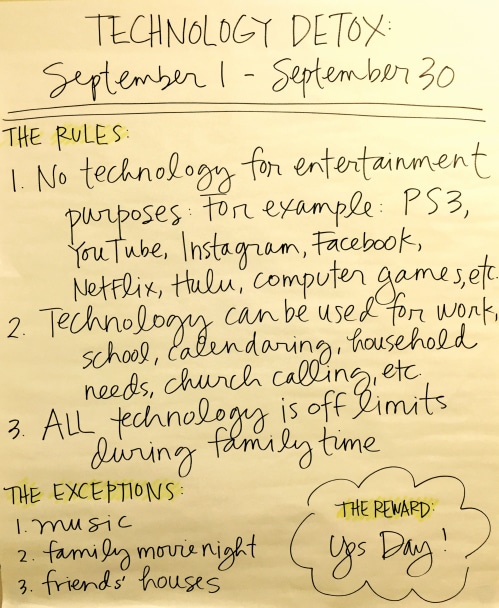 TECHNOLOGY DETOX:
September 1 - September 30
THE RULES:
1. No technology for entertainment
purposes: For example: PS3,
YouTube, Instagram, Facebook,
Netflix, Hulu, computer games, etc.
2. Technology can be used for work,
school, calendaring, household
needs, church calling, etc.
3. ALL technology is off limits
during family time
THE EXCEPTIONS:
1. music
2. family movie night
3. friends' houses
THE REWARD:
Yes Day!